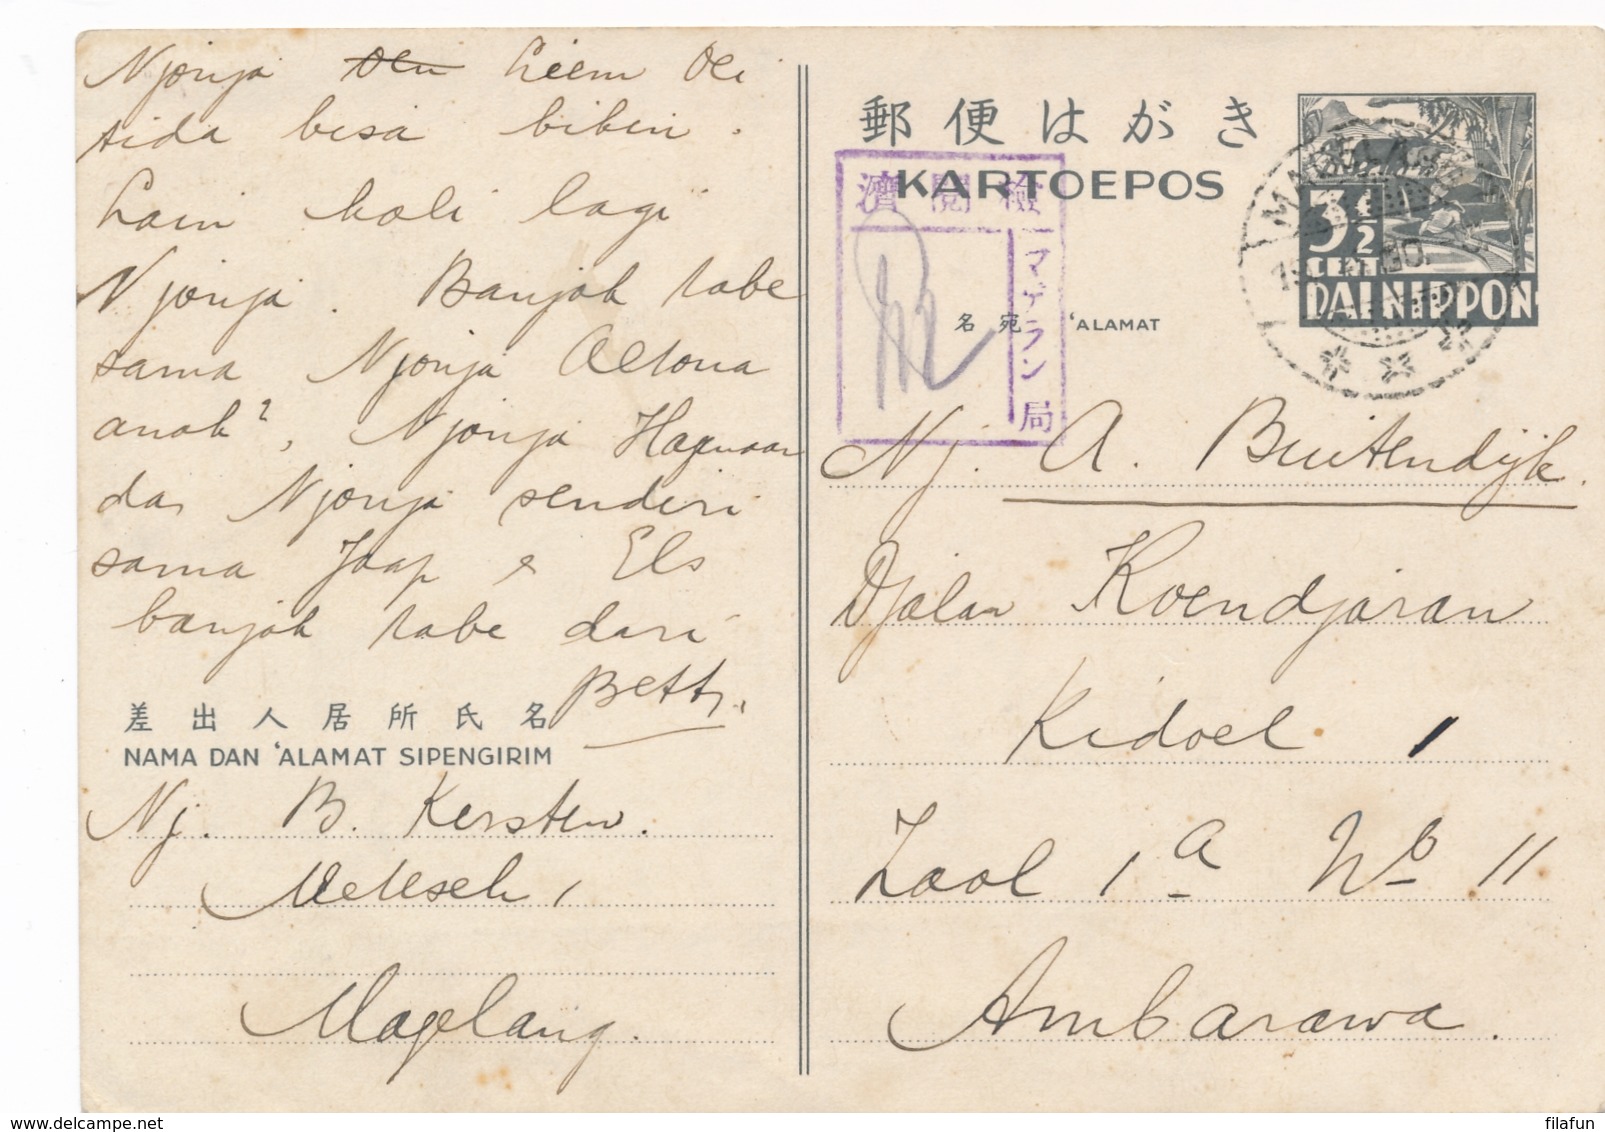 Njonja Liem Oei
tida besa bikin.
Lain kali lagi
Njonja. Banjak tabe
sama Njonja Altona
anak², Njonja Hagenaar
dan Njonja sendiri
sama Jaap & Els
banjak tabe dari
Betty.
差出人居所氏名
NAMA DAN ‘ALAMAT SIPENGIRIM
Nj. B. Kersten.
Magelang.
郵便はがき
KARTOEPOS
檢閲濟
マゲラン局
名宛 ‘ALAMAT
3½
CENT
DAI NIPPON
Nj. A. Buitendijk.
Djalan Koendjaran
Kidoel 1
1a No 11
Ambarawa.
https://www.delcampe.net filafun